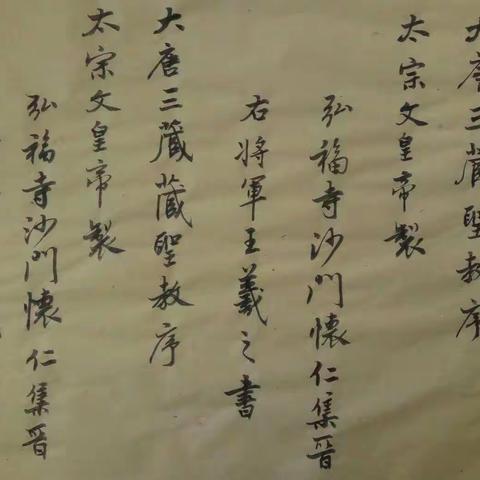 大唐三藏聖教序
太宗文皇帝製
弘福寺沙門懷仁集晉
右將軍王羲之書
大唐三藏藏聖教序
太宗文皇帝製
弘福寺沙門懷仁集晉